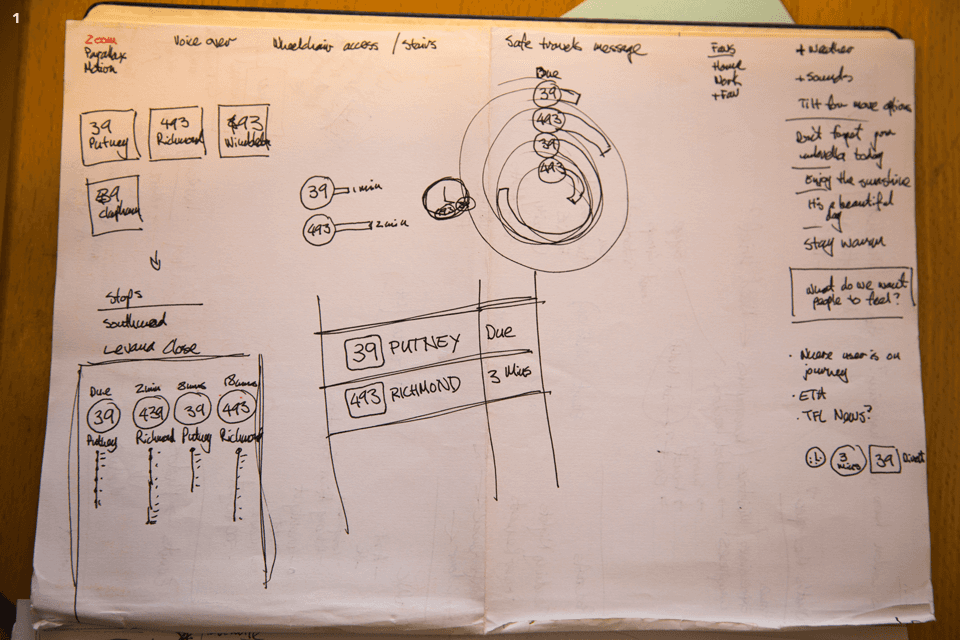 1
Zoom
Parallax
Motion
Voice over
Wheelchair access / Stairs
Safe travels message
Favs
Home
Work
+ Fav
+ Weather
+ Sounds
Tilt for more options
Don't forget your
umbrella today
Enjoy the sunshine
It's a beautiful
day
Stay warm
What do we want
people to feel?
39
Putney
493
Richmond
493
39
Clapham
Stops
Southmead
Levana Close
Due
39
Putney
2min
439
Richmond
8mins
39
Putney
18mins
493
Richmond
39
1min
493
2min
Due
39
493
39
493
39 PUTNEY Due
493 RICHMOND 3 Mins
· Where user is on
journey
· ETA
· TFL News?
3
mins
39